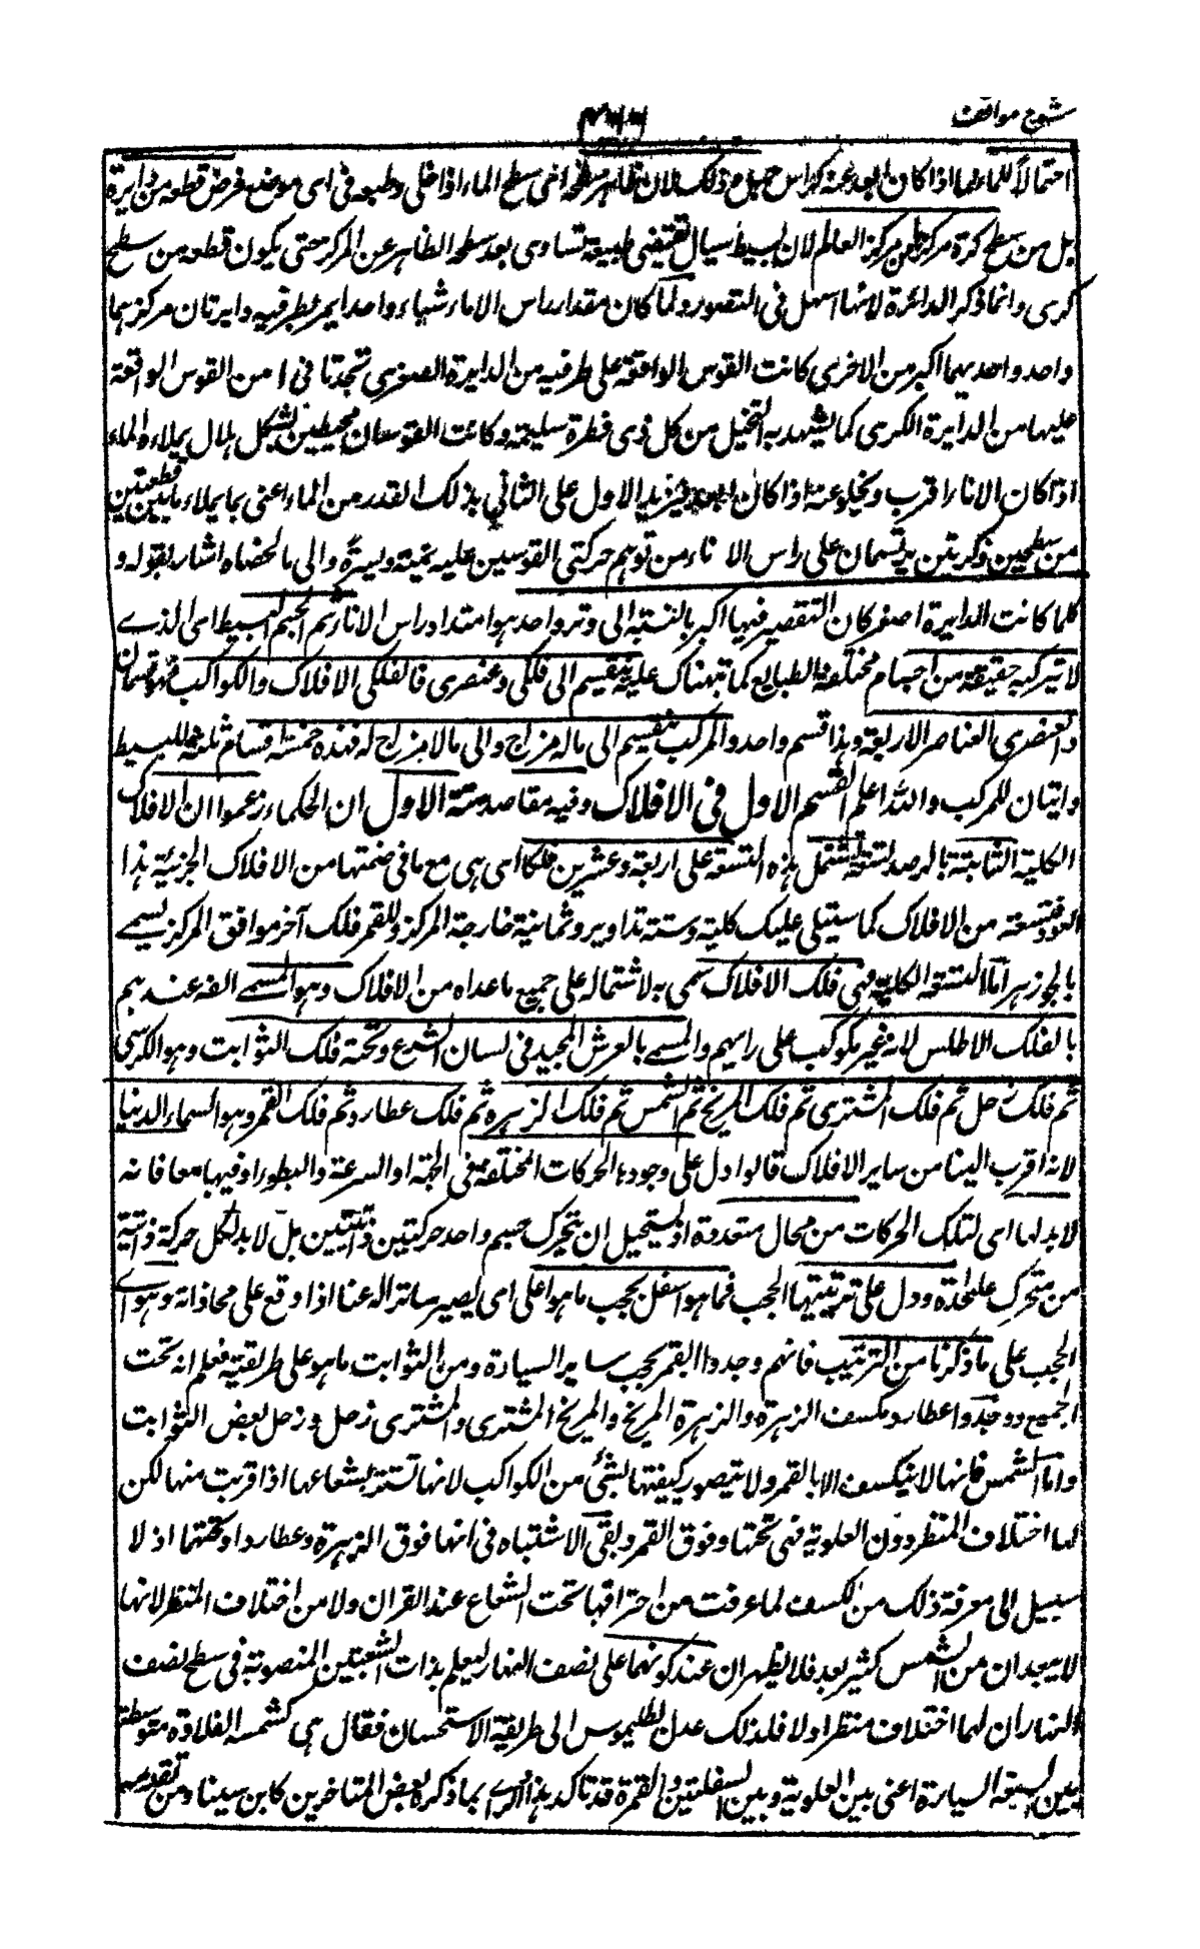 شرح مواقف
احتمالا للماء منها اذا كان ابعد عنه كراس جبل وذلك لان ظاهر سطحه اعنى سطح الماء اذا خلى وطبعه فى اى موضع فرض قطعه من دايرة
بل من سطح كرة مركزها من مركز العالم لان البسيط سيال تقتضى طبيعته تساوى بعد سطحه الظاهر عن المركز حتى يكون قطعه من سطح
كرى وانما ذكر الدائرة لانها اسهل فى التصور ولما كان مقدار راس الاناء شيئا واحدا يمر بطرفيه دايرتان مركزهما
واحد واحديهما اكبر من الاخرى كانت القوس الواقعة على طرفيه من الدايرة الصغرى تحدبا من القوس الواقعة
عليها من الدايرة الكبرى كما يشهد به التخيل من كل ذى فطرة سليمة وكانت القوسان محيطين بشكل هلال يملاءه الماء
اذا كان الاناء اقرب ويخلو عنه اذا كان ابعد فيزيد الاول على الثانى بذلك القدر من الماء اعنى بما يملاء ما بين قطعتين
من سطحين كريتين يرتسمان على راس الاناء من توهم حركتى القوسين عليه يمنة ويسرة والى ما لخصناه اشار بقوله و
كلما كانت الدايرة اصغر كان التقصير فيها اكبر بالنسبة الى وتر واحد هو امتداد راس الاناء ثم الجسم البسيط اى الذے
لا تتركب حقيقته من اجسام مختلفة الطبايع كما نبهناك عليه ينقسم الى فلكى وعنصرى فالفلكى الافلاك والكواكب فهو قسمان
والعنصرى العناصر الاربعة وهذا قسم واحد والمركب ينقسم الى ماله مزاج والى مالا مزاج له فهذه خمسة اقسام ثلثة للبسيط
واثنان للمركب والله اعلم القسم الاول فى الافلاك وفيه مقاصد ستة الاول ان الحكماء زعموا ان الافلاك
الكلية الثابتة بالرصد تسعة تشتمل هذه التسعة على اربعة وعشرين فلكا اى هى مع ما فى ضمنها من الافلاك الجزئية هذا
العدد تسعة من الافلاك كما سيتلى عليك كلية وستة تداوير وثمانية خارجة المركز وللقمر فلك آخر موافق المركز يسمے
بالجوزهر اما التسعة الكلية فهى فلك الافلاك سمى به لاشتماله على جميع ما عداه من الافلاك وهو المسمے الفه عندهم
بالفلك الاطلس لانه غير مكوكب على رايهم والمسمے بالعرش المجيد فى لسان الشرع وتحته فلك الثوابت وهو الكرسى
ثم فلك زحل ثم فلك المشترى ثم فلك المريخ ثم الشمس ثم فلك الزهرة ثم فلك عطارد ثم فلك القمر وهو السماء الدنيا
لانه اقرب الينا من ساير الافلاك قالوا دل على وجودها الحركات المختلفة فى الجهة او السرعة والبطوء او فيهما معا فانه
لا بد لها اى لتلك الحركات من محال متعددة اذ يستحيل ان يتحرك جسم واحد حركتين ذاتيتين بل لا بد لكل حركة ذاتية
من متحرك على حدة ودل على ترتيبها الحجب فما هو اسفل يحجب ما هو اعلى اى يصير ساتراً له عنا اذا وقع على محاذاته وهو اے
الحجب على ما ذكرنا من الترتيب فانهم وجدوا القمر يحجب ساير السيارة ومن الثوابت ما هو على طريقته فعلم انه تحت
الجميع ووجدوا عطارد يكسف الزهرة والزهرة المريخ والمريخ المشترى والمشترى زحل وزحل بعض الثوابت
واما الشمس فانها لا ينكسف الا بالقمر ولا يتصور كسفتها لشئ من الكواكب لانها تستتر بشعاعها اذا قربت منها لكن
لها اختلاف المنظر دون العلوية فهى تحتها وفوق القمر وبقى الاشتباه فى انها فوق الزهرة وعطارد او تحتهما اذ لا
سبيل الى معرفة ذلك من الكسف لما عرفت من احتراقها تحت الشعاع عند القران ولا من اختلاف المنظر لانها
لا يبعدان من الشمس كثير بعد فلا يظهران عند كونهما على نصف النهار ليعلم بذات الشعبتين المنصوبة فى سطح نصف
النهار ان لهما اختلاف منظر اولا فلذلك عدل بطليموس الى طريقة الاستحسان فقال هى كشمسة القلادة متوسطة
بين السبعة السيارة اعنى بين العلوية وبين السفليتين والقمر وقد تاكد هذا الرأى بما ذكره بعض المتاخرين كابن سينا ومن تقدمه